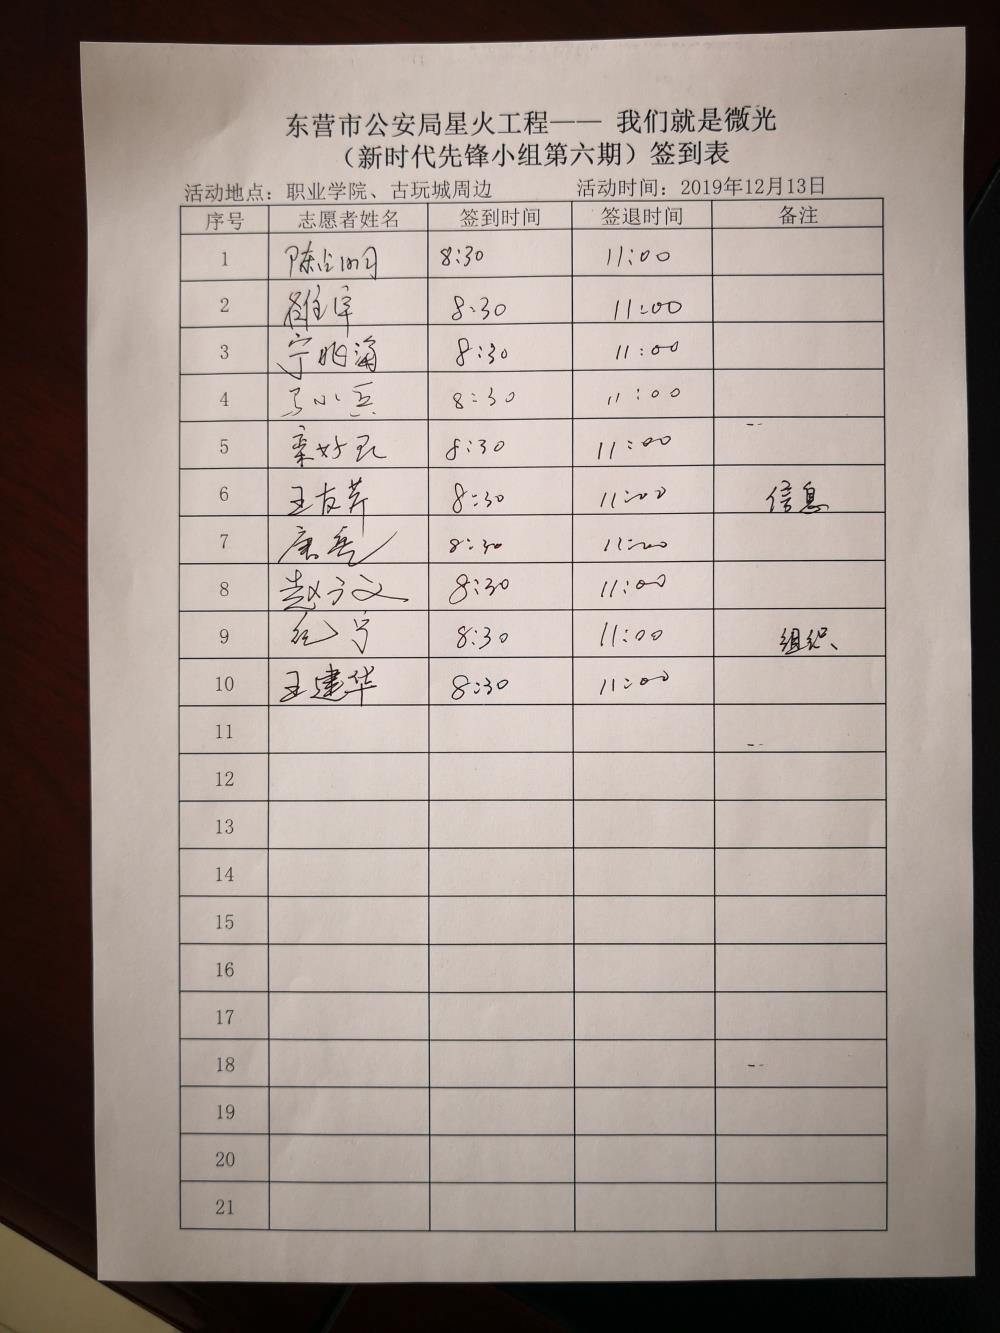 东营市公安局星火工程—— 我们就是微光
（新时代先锋小组第六期）签到表
活动地点：职业学院、古玩城周边 活动时间：2019年12月13日
序号 志愿者姓名 签到时间 签退时间 备注
1 8:30 11:00
2 8:30 11:00
3 宁 8:30 11:00
4 小兵 8:30 11:00
5 栾好 8:30 11:00
6 王友芹 8:30 11:00 信息
7 唐 8:30 11:00
8 赵方文 8:30 11:00
9 纪宁 8:30 11:00 组织、
10 王建华 8:30 11:00
11
12
13
14
15
16
17
18
19
20
21